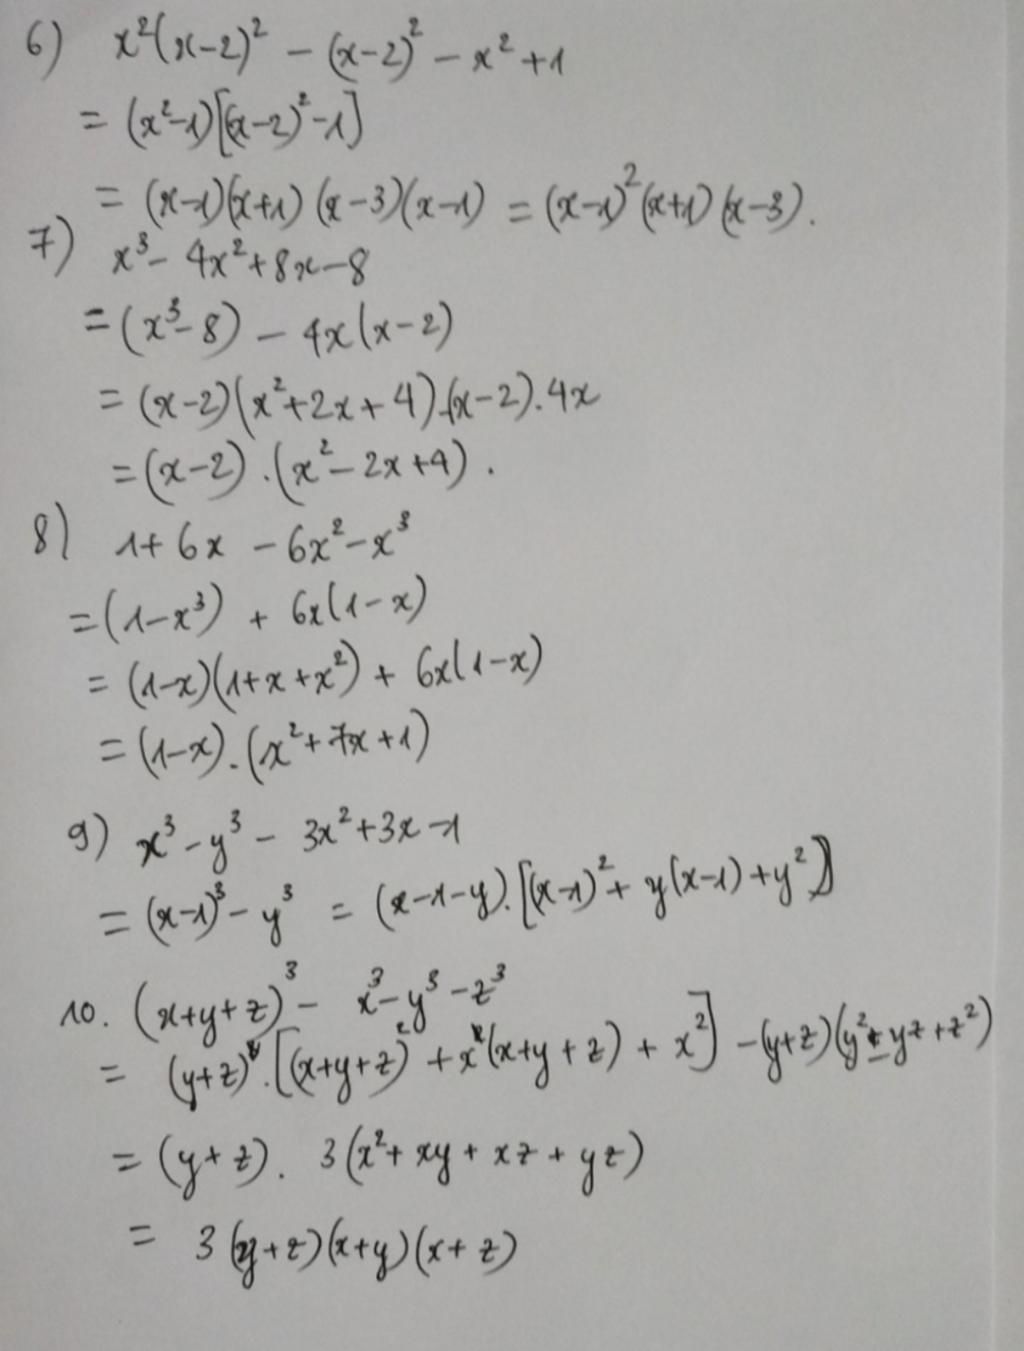 6) x²(x-2)² - (x-2)² - x² + 1
= (x²-1)[(x-2)²-1]
= (x-1)(x+1)(x-3)(x-1) = (x-1)²(x+1)(x-3).
7) x³ - 4x² + 8x - 8
= (x³-8) - 4x(x-2)
= (x-2)(x²+2x+4)-(x-2).4x
= (x-2).(x²-2x+4).
8) 1 + 6x - 6x² - x³
= (1-x³) + 6x(1-x)
= (1-x)(1+x+x²) + 6x(1-x)
= (1-x).(x²+7x+1)
9) x³ - y³ - 3x² + 3x - 1
= (x-1)³ - y³ = (x-1-y).[(x-1)² + y(x-1) + y²)]
10. (x+y+z)³ - x³ - y³ - z³
= (y+z).[(x+y+z)² + x(x+y+z) + x²] - (y+z)(y² - yz + z²)
= (y+z). 3(x² + xy + xz + yz)
= 3(y+z)(x+y)(x+z)